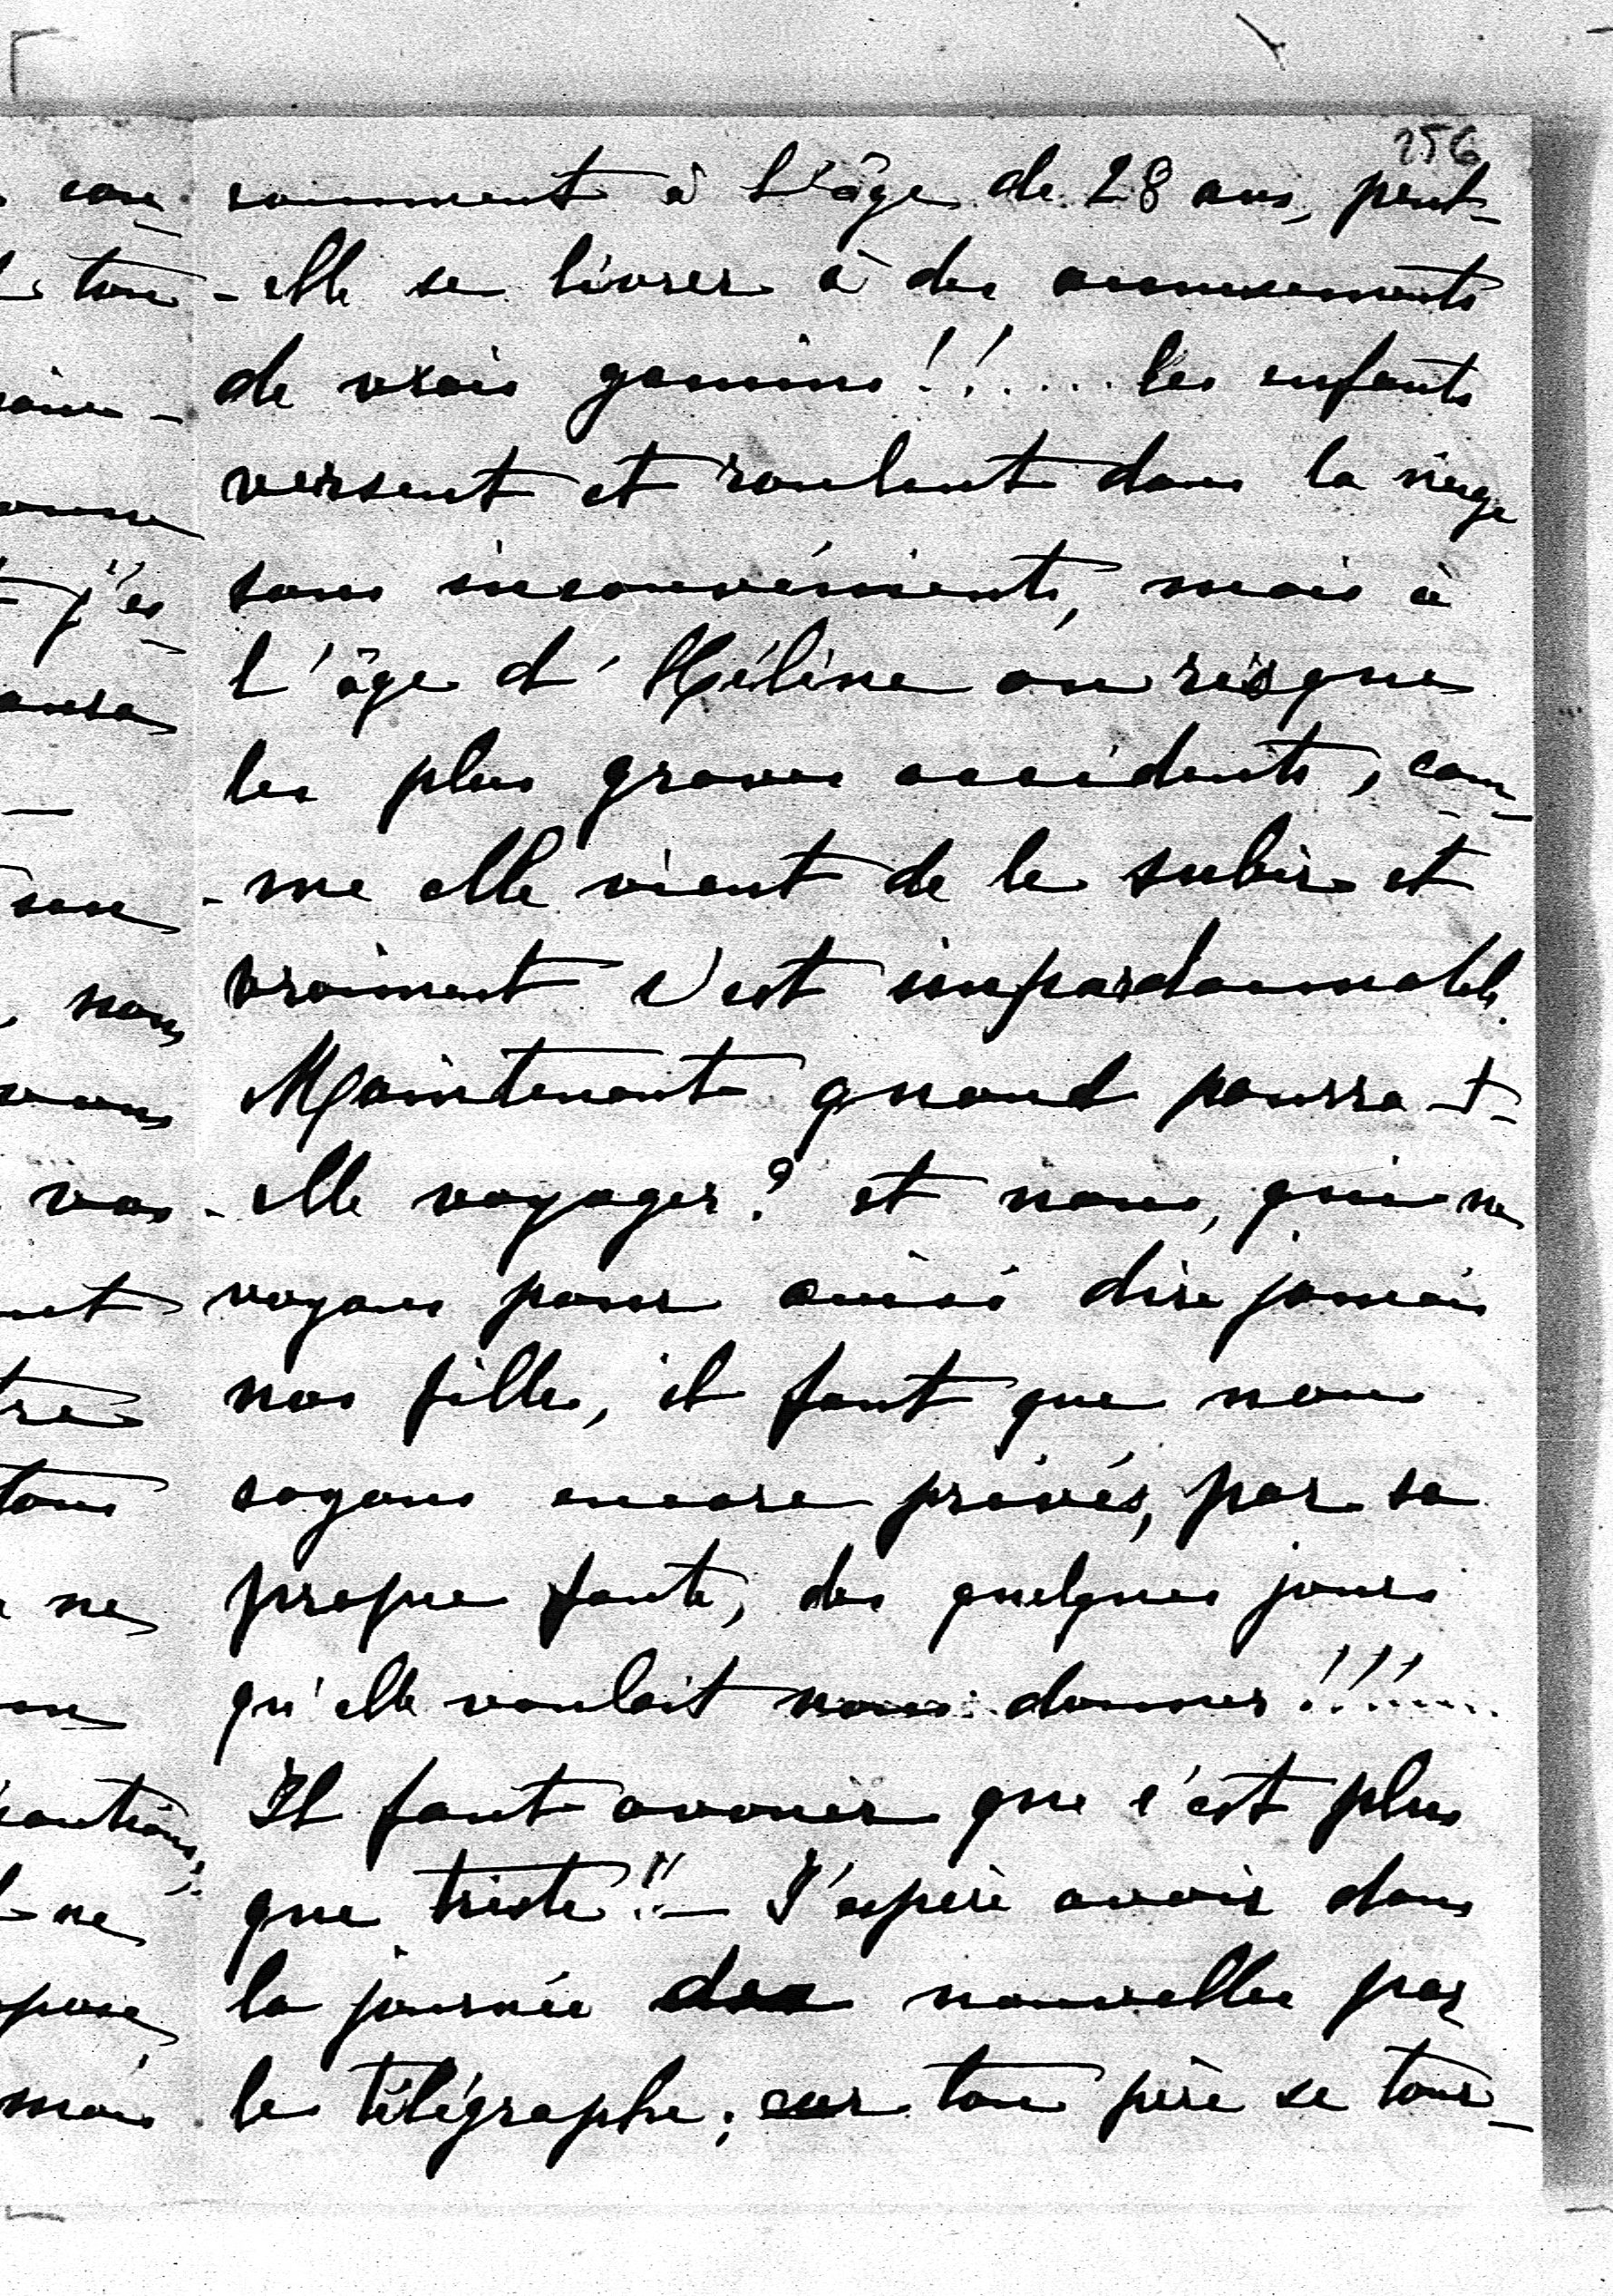 256
sonnement à l'âge de 28 ans, peut-
-elle se livrer à des amusements
de vrais gamins!!.... les enfants
versent et roulent dans la neige
sans inconvénients, mais à
l'âge d'Hélène on risque
les plus graves accidents, com-
-me elle vient de le subir et
vraiment c'est impardonnable.
Maintenant quand pourra-t-
-elle voyager? et nous, qui ne
voyons pour ainsi dire jamais
nos filles, il faut que nous
soyons encore privés, par sa
propre faute, des quelques jours
qu'elle voulait nous donner!!!....
Il faut avouer que c'est plus
que triste!!— J'espère avoir dans
la journée des nouvelles par
le télégraphe; car ton père se tour-